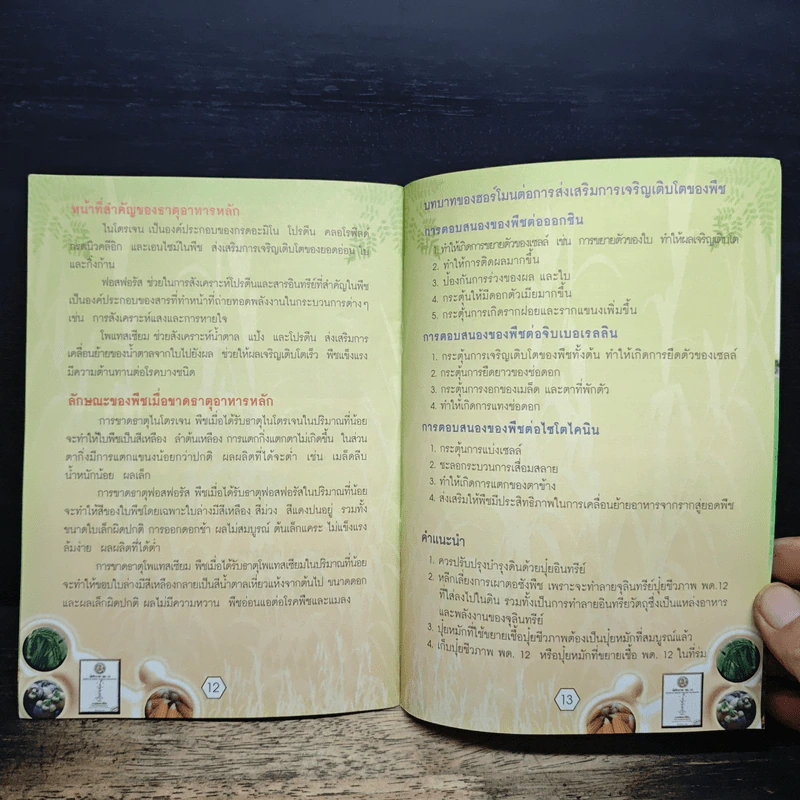 หน้าที่สำคัญของธาตุอาหารหลัก
ไนโตรเจน เป็นองค์ประกอบของกรดอะมิโน โปรตีน คลอโรฟิลล์
กรดนิวคลีอิก และเอนไซม์ในพืช ส่งเสริมการเจริญเติบโตของยอดอ่อน ใบ
และกิ่งก้าน
ฟอสฟอรัส ช่วยในการสังเคราะห์โปรตีนและสารอินทรีย์ที่สำคัญในพืช
เป็นองค์ประกอบของสารที่ทำหน้าที่ถ่ายทอดพลังงานในกระบวนการต่างๆ
เช่น การสังเคราะห์แสงและการหายใจ
โพแทสเซียม ช่วยสังเคราะห์น้ำตาล แป้ง และโปรตีน ส่งเสริมการ
เคลื่อนย้ายของน้ำตาลจากใบไปยังผล ช่วยให้ผลเจริญเติบโตเร็ว พืชแข็งแรง
มีความต้านทานต่อโรคบางชนิด
ลักษณะของพืชเมื่อขาดธาตุอาหารหลัก
การขาดธาตุไนโตรเจน พืชเมื่อได้รับธาตุไนโตรเจนในปริมาณที่น้อย
จะทำให้ใบพืชเป็นสีเหลือง ลำต้นเหลือง การแตกกิ่งแตกตาไม่เกิดขึ้น ในส่วน
ตากิ่งมีการแตกแขนงน้อยกว่าปกติ ผลผลิตที่ได้จะต่ำ เช่น เมล็ดลีบ
น้ำหนักน้อย ผลเล็ก
การขาดธาตุฟอสฟอรัส พืชเมื่อได้รับธาตุฟอสฟอรัสในปริมาณที่น้อย
จะทำให้สีของใบพืชโดยเฉพาะใบล่างมีสีเหลือง สีม่วง สีแดงปนอยู่ รวมทั้ง
ขนาดใบเล็กผิดปกติ การออกดอกช้า ผลไม่สมบูรณ์ ต้นเล็กแคระ ไม่แข็งแรง
ล้มง่าย ผลผลิตที่ได้ต่ำ
การขาดธาตุโพแทสเซียม พืชเมื่อได้รับธาตุโพแทสเซียมในปริมาณที่น้อย
จะทำให้ขอบใบล่างมีสีเหลืองกลายเป็นสีน้ำตาลเหี่ยวแห้งจากต้นไป ขนาดดอก
และผลเล็กผิดปกติ ผลไม่มีความหวาน พืชอ่อนแอต่อโรคพืชและแมลง
12
บทบาทของฮอร์โมนต่อการส่งเสริมการเจริญเติบโตของพืช
การตอบสนองของพืชต่อออกซิน
1. ทำให้เกิดการขยายตัวของเซลล์ เช่น การขยายตัวของใบ ทำให้ผลเจริญเติบโต
2. ทำให้การติดผลมากขึ้น
3. ป้องกันการร่วงของผล และใบ
4. กระตุ้นให้มีดอกตัวเมียมากขึ้น
5. กระตุ้นการเกิดรากฝอยและรากแขนงเพิ่มขึ้น
การตอบสนองของพืชต่อจิบเบอเรลลิน
1. กระตุ้นการเจริญเติบโตของพืชทั้งต้น ทำให้เกิดการยืดตัวของเซลล์
2. กระตุ้นการยืดยาวของช่อดอก
3. กระตุ้นการงอกของเมล็ด และตาที่พักตัว
4. ทำให้เกิดการแทงช่อดอก
การตอบสนองของพืชต่อไซโตไคนิน
1. กระตุ้นการแบ่งเซลล์
2. ชะลอกระบวนการเสื่อมสลาย
3. ทำให้เกิดการแตกของตาข้าง
4. ส่งเสริมให้พืชมีประสิทธิภาพในการเคลื่อนย้ายอาหารจากรากสู่ยอดพืช
คำแนะนำ
1. ควรปรับปรุงบำรุงดินด้วยปุ๋ยอินทรีย์
2. หลีกเลี่ยงการเผาตอซังพืช เพราะจะทำลายจุลินทรีย์ปุ๋ยชีวภาพ พด.12
ที่ใส่ลงไปในดิน รวมทั้งเป็นการทำลายอินทรียวัตถุซึ่งเป็นแหล่งอาหาร
และพลังงานของจุลินทรีย์
3. ปุ๋ยหมักที่ใช้ขยายเชื้อปุ๋ยชีวภาพต้องเป็นปุ๋ยหมักที่สมบูรณ์แล้ว
4. เก็บปุ๋ยชีวภาพ พด. 12 หรือปุ๋ยหมักที่ขยายเชื้อ พด. 12 ในที่ร่ม
13